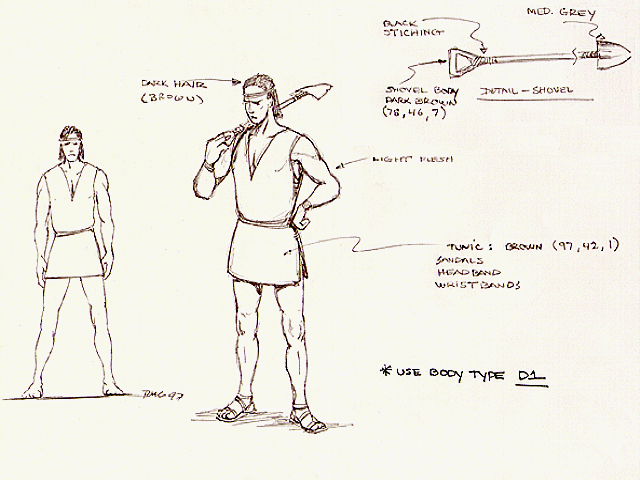 BLACK
STICHING
MED. GREY
DARK HAIR
(BROWN)
SHOVEL BODY
DARK BROWN
(78, 46, 7)
DETAIL - SHOVEL
LIGHT FLESH
TUNIC: BROWN (97, 42, 1)
SANDALS
HEADBAND
WRISTBANDS
* USE BODY TYPE D1
RMG 97